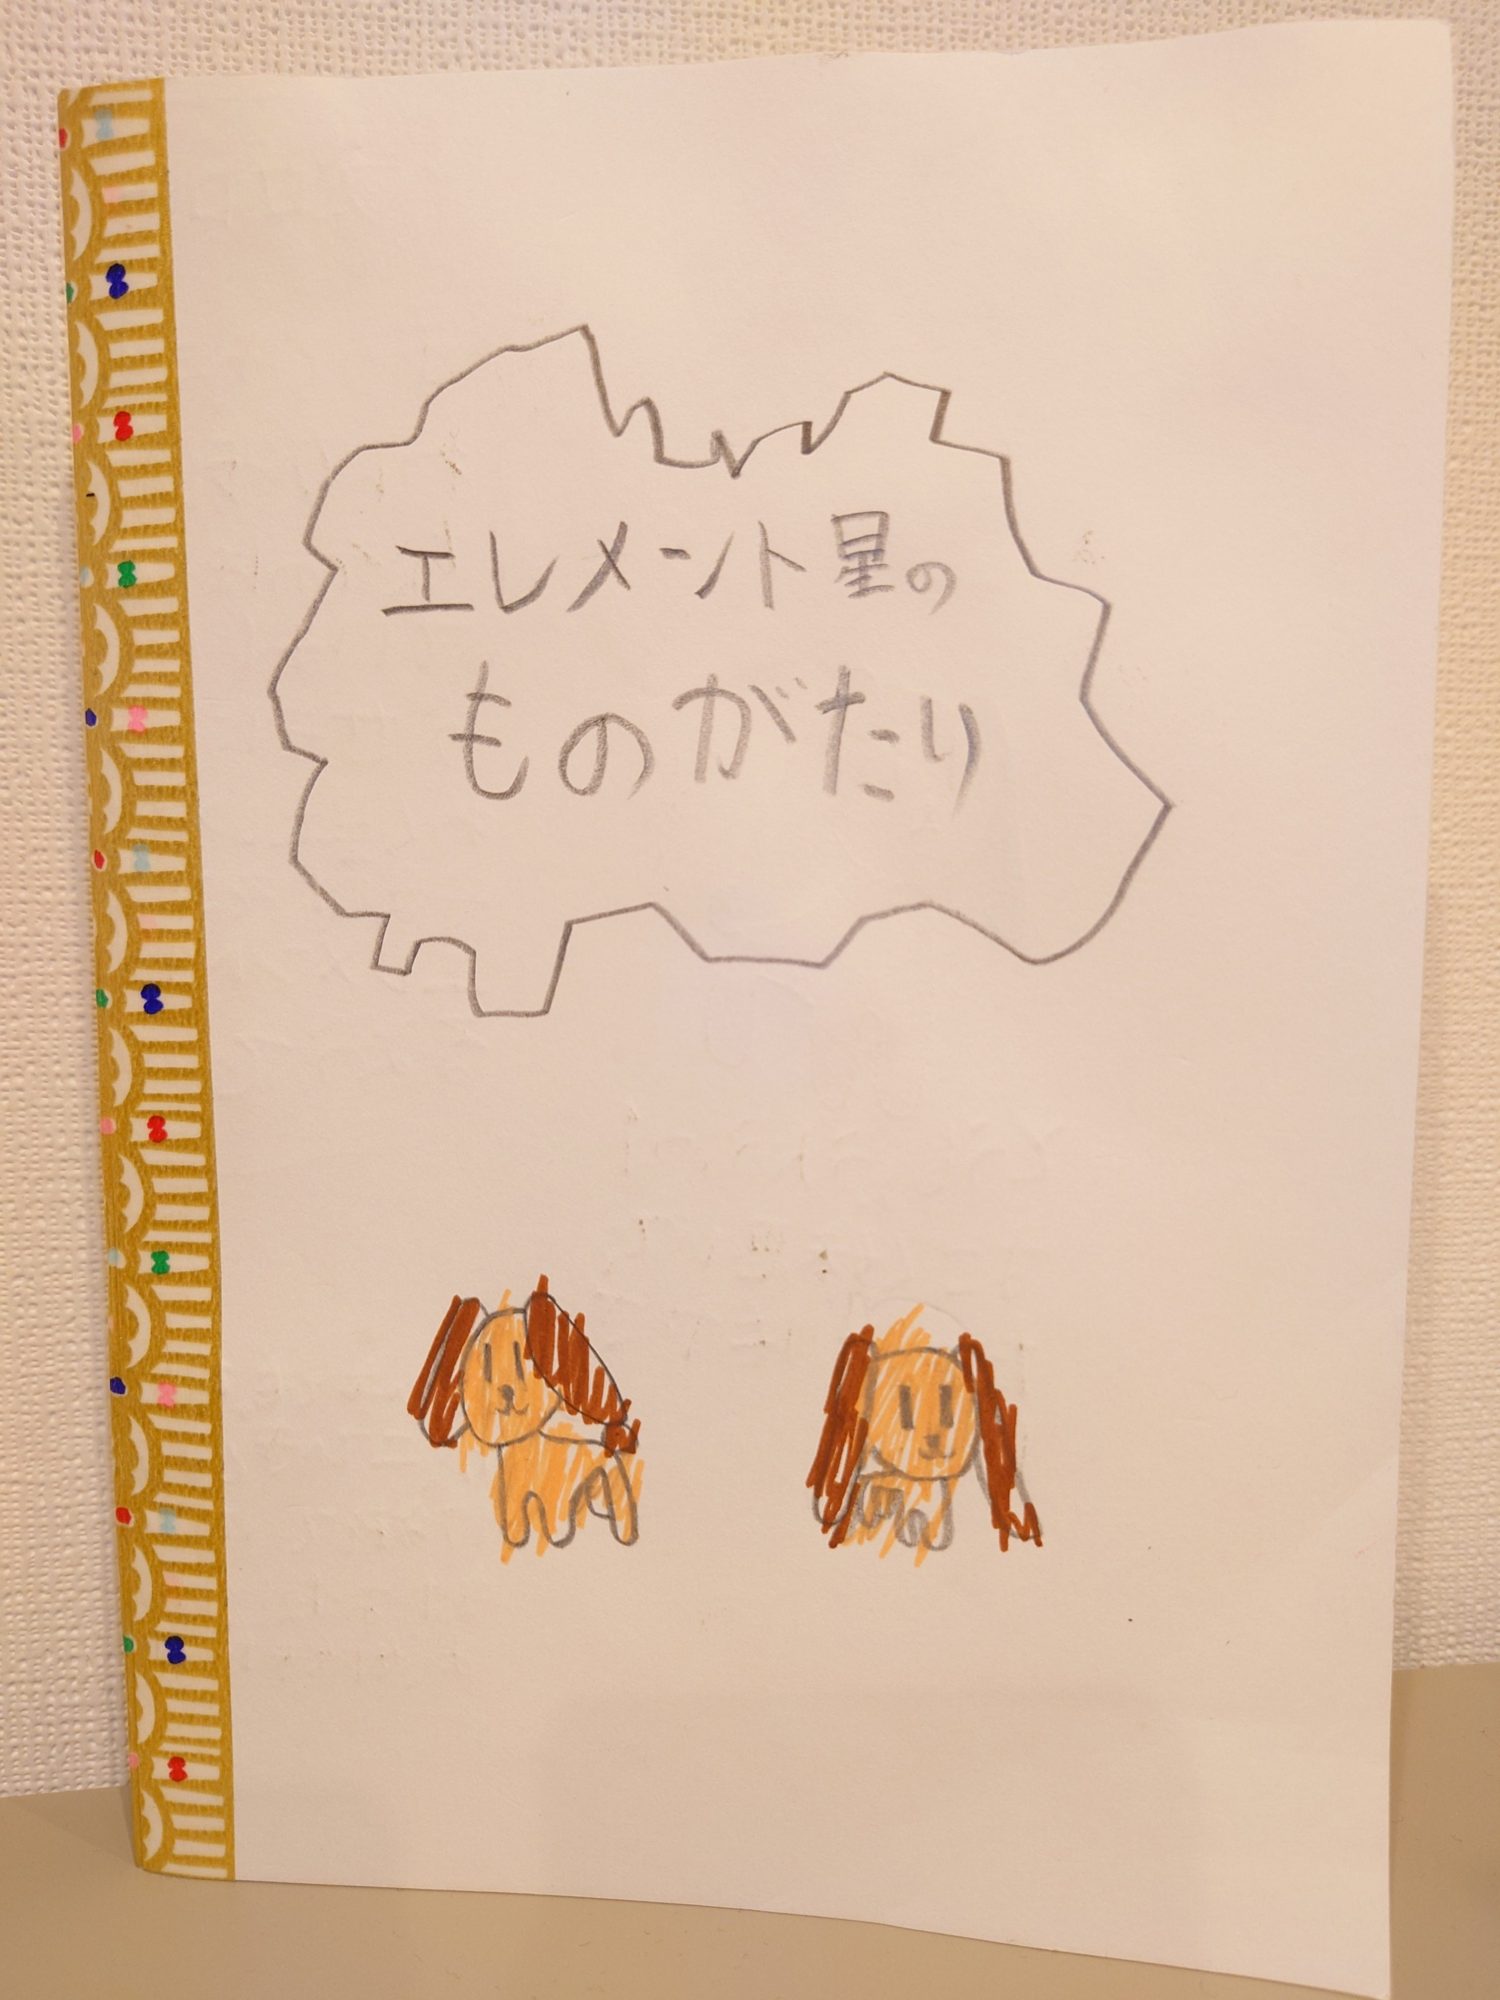 エレメント星の
ものがたり